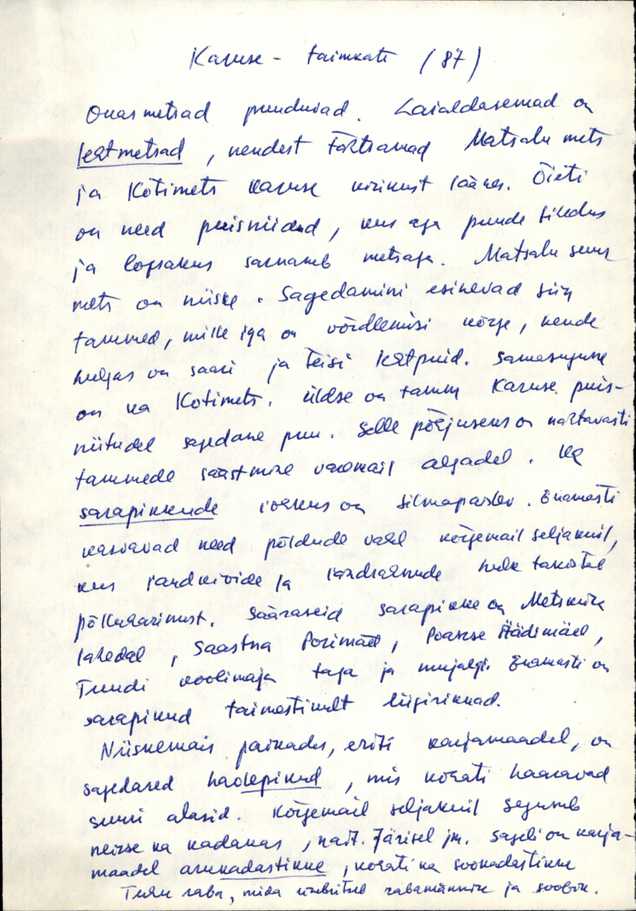 Karuse - taimkate (87)
Okasmetsad puuduvad. Laialdasemad on
lehtmetsad, nendest tähtsamad Matsalu mets
ja Kotimets Karuse kirikust lääne. Õieti
on need puisniidud, kus aga puude tihedus
ja lopsakus sarnaneb metsaga. Matsalu suur
mets on niiske. Sagedamini esinevad siin
tammed, mille iga on võrdlemisi kõrge, nende
kuljas on saari ja teisi lehtpuid. Samasugune
on ka Kotimets. Üldse on tamm Karuse puis-
niitudel sagedane puu. Selle põhjuseks on nähtavasti
tammede säästmine varemail aegadel. Ka
sarapikkude rohkus on silmapaistev. Enamasti
kasvavad need põldude vahel kõrgemail seljakuil,
kus rändkivide ja rändrahnude hulk takistab
põlluharimist. Sääraseid sarapikke on Metsküla
lähedal, Saastna Porimäel, Paatsa Hädsmäel,
Tuudi koolimaja taga ja mujalgi. Enamasti on
sarapikud taimestikult liigirikkad.
Niiskemais paikades, eriti karjamaadel, on
sagedased haolepikud, mis kohati haaravad
suuri alasid. Kõrgemail seljakuil seguneb
neisse ka kadakas, näit. Järisel jm. Sageli on karja-
maadel arukadastikke, kohati ka sookadastikke
Tuhu raba, mida ümbritseb rabamännik ja sookask.